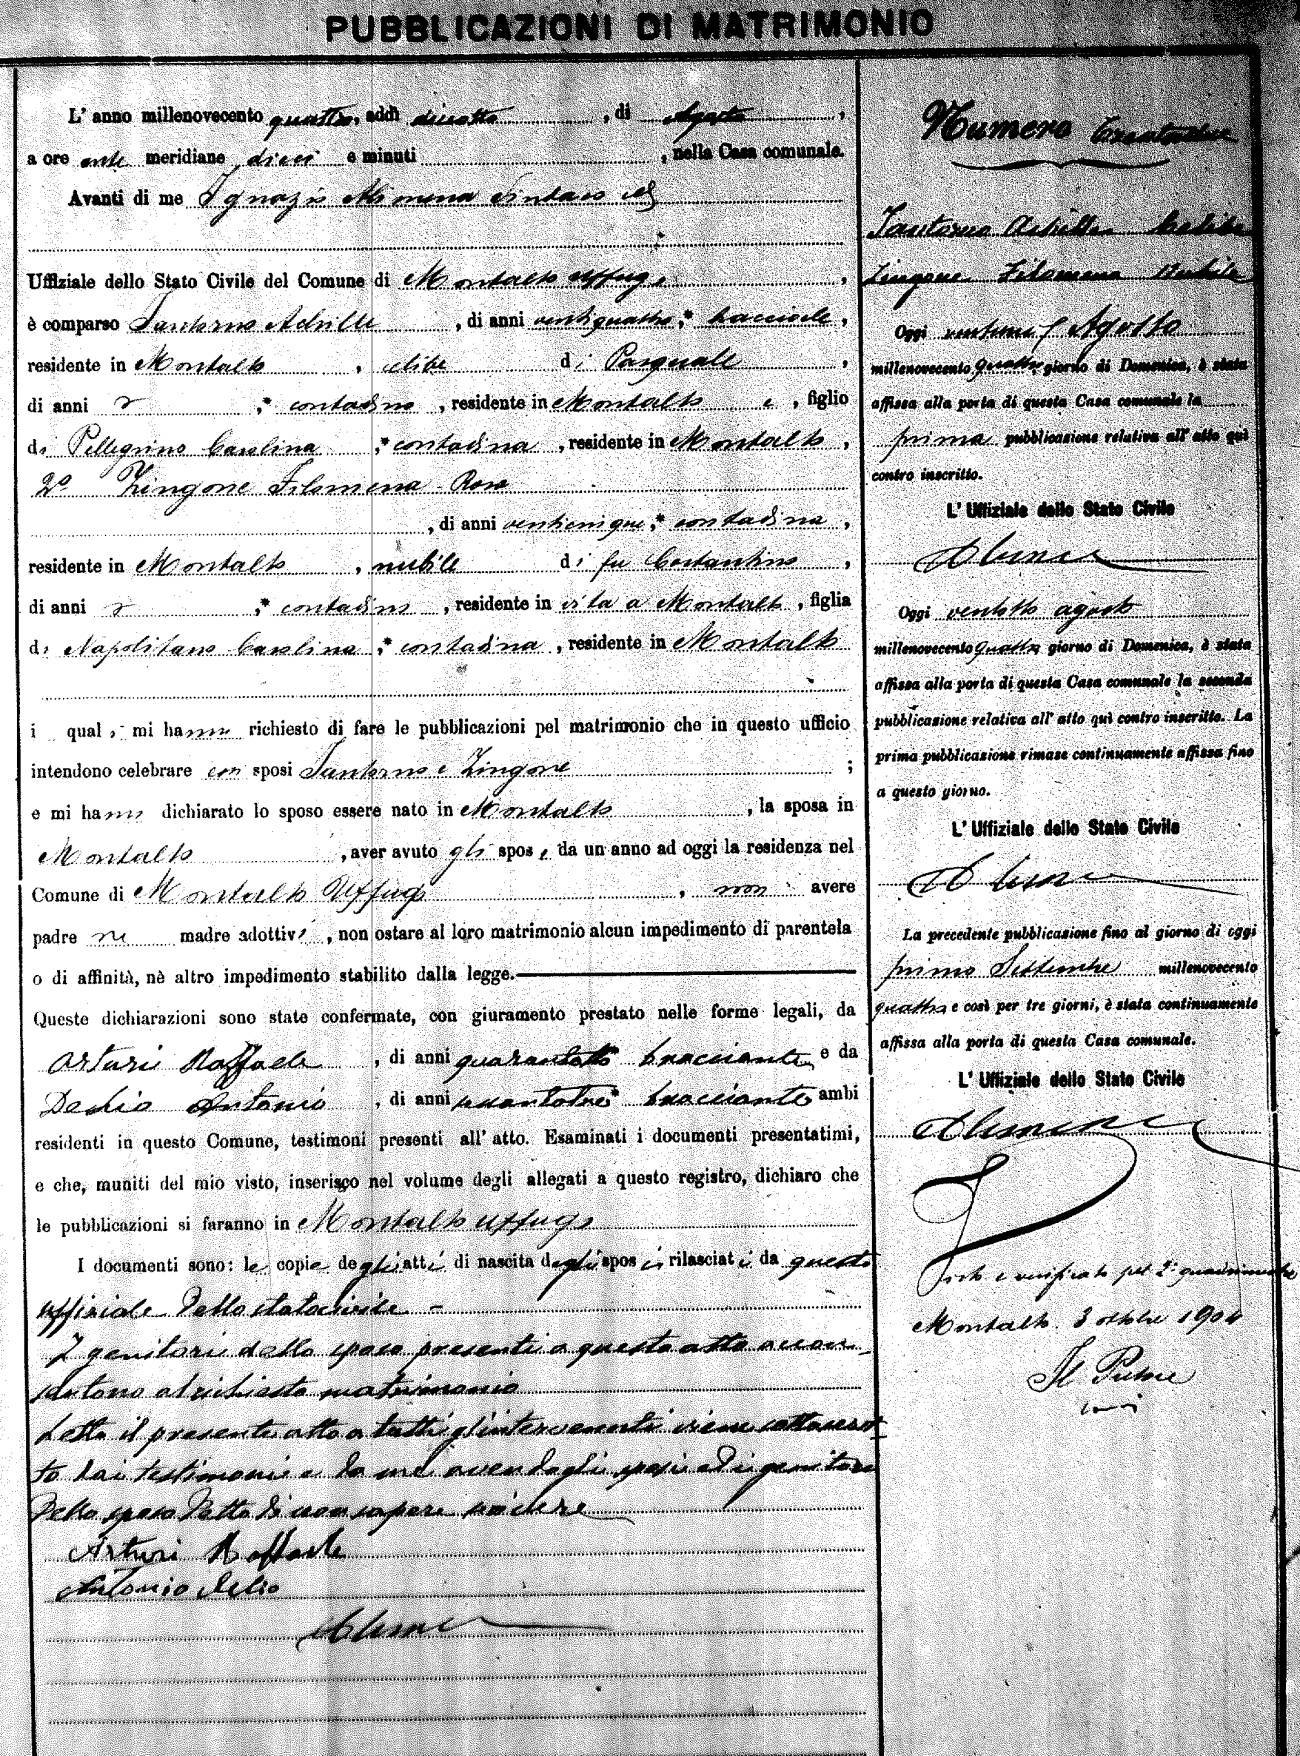 PUBBLICAZIONI DI MATRIMONIO
L' anno millenovecento quattro, addì diciotto , di Agosto ,
a ore ante meridiane dieci e minuti , nella Casa comunale.
Avanti di me Ignazio Sindaco
Uffiziale dello Stato Civile del Comune di Montalto Uffugo ,
è comparso Santorno Achille , di anni ventiquattro, * bracciale,
residente in Montalto , celibe di Pasquale ,
di anni , * contadino , residente in Montalto e , figlio
di Pellegrino Carolina , * contadina , residente in Montalto ,
2º Zingone Filomena - Rosa
, di anni venticinque, * contadina ,
residente in Montalto , nubile di fu Costantino ,
di anni , * contadino , residente in vita a Montalto , figlia
di Napolitano Carolina , * contadina , residente in Montalto
i quali mi hanno richiesto di fare le pubblicazioni pel matrimonio che in questo ufficio
intendono celebrare essi sposi Santorno e Zingone ;
e mi hanno dichiarato lo sposo essere nato in Montalto , la sposa in
Montalto , aver avuto gli sposi, da un anno ad oggi la residenza nel
Comune di Montalto Uffugo , non avere
padre ne madre adottivi , non ostare al loro matrimonio alcun impedimento di parentela
o di affinità, nè altro impedimento stabilito dalla legge.
Queste dichiarazioni sono state confermate, con giuramento prestato nelle forme legali, da
Arturi Raffaele , di anni quarantotto bracciante e da
Delio Antonio , di anni * bracciante ambi
residenti in questo Comune, testimoni presenti all' atto. Esaminati i documenti presentatimi,
e che, muniti del mio visto, inserisco nel volume degli allegati a questo registro, dichiaro che
le pubblicazioni si faranno in Montalto Uffugo
I documenti sono: le copie degli atti di nascita degli sposi rilasciati da questo
uffiziale dello stato civile -
I genitori dello sposo presenti a questo atto accon-
sentono al richiesto matrimonio
Letto il presente atto a tutti gl'intervenuti viene sottoscrit-
to dai testimoni e da me avendo gli sposi ed i genitori
dello sposo detto di non sapere scrivere
Arturi Raffaele
Antonio Delio
Numero trentadue
Santorno Achille Celibe
Zingone Filomena Nubile
Oggi ventuno Agosto
millenovecento quattro giorno di Domenica, è stata
affissa alla porta di questa Casa comunale la
prima pubblicazione relativa all' atto quì
contro inscritto.
L' Uffiziale dello Stato Civile
Oggi ventotto agosto
millenovecento quattro giorno di Domenica, è stata
affissa alla porta di questa Casa comunale la seconda
pubblicazione relativa all' atto quì contro inscritto. La
prima pubblicazione rimase continuamente affissa fino
a questo giorno.
L' Uffiziale dello Stato Civile
La precedente pubblicazione fino al giorno di oggi
primo Settembre millenovecento
quattro e così per tre giorni, è stata continuamente
affissa alla porta di questa Casa comunale.
L' Uffiziale dello Stato Civile
verificato pel 2º quadrimestre
Montalto 3 ottobre 1904
Il Pretore